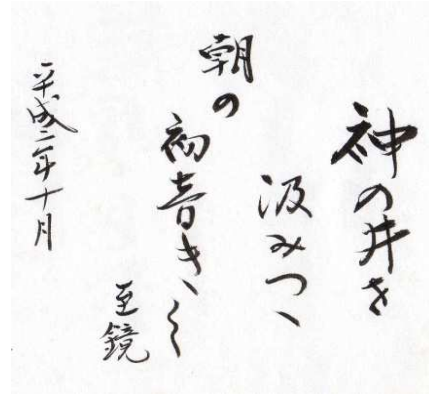 神の井を
汲みつゝ
朝の
初音きく
至鏡
平成二年十月